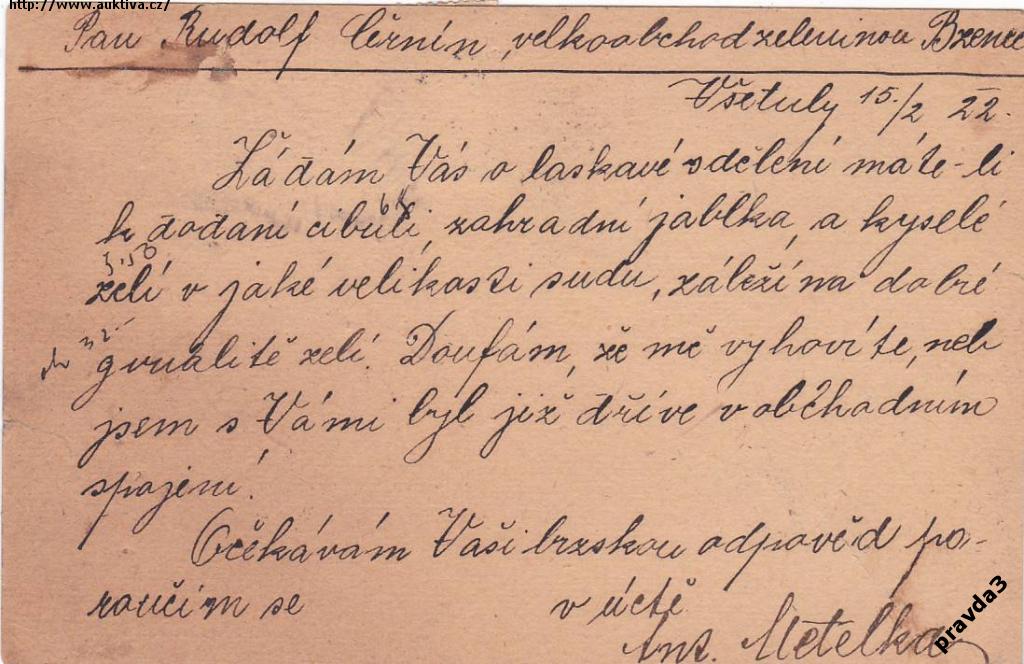 http://www.auktiva.cz/
Pan Rudolf Černín, velkoobchod zeleninou Bzenec
Všetuly 15./2 22.
Žádám Vás o laskavé sdělení máte-li
68
k dodaní cibuli, zahradní jablka, a kyselé
5,50
zelí v jaké velikosti sudu, záleží na dobré
32-
gvualitě zelí. Doufám, že mě vyhovíte, neb
jsem s Vámi byl již dříve v obchodním
spojení.
Očěkávám Vaši brzskou odpověd po-
roučím se v úctě
Ant. Metelka
pravda3